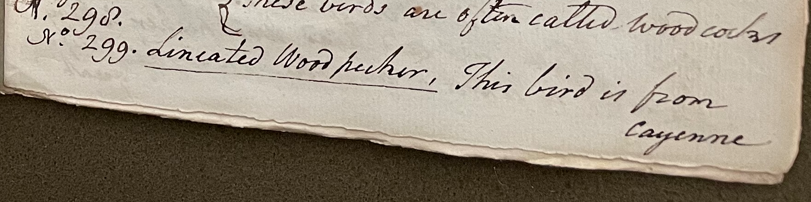 N. 298. { These birds are often called woodcocks
No. 299. Lineated Woodpecker, This bird is from
Cayenne